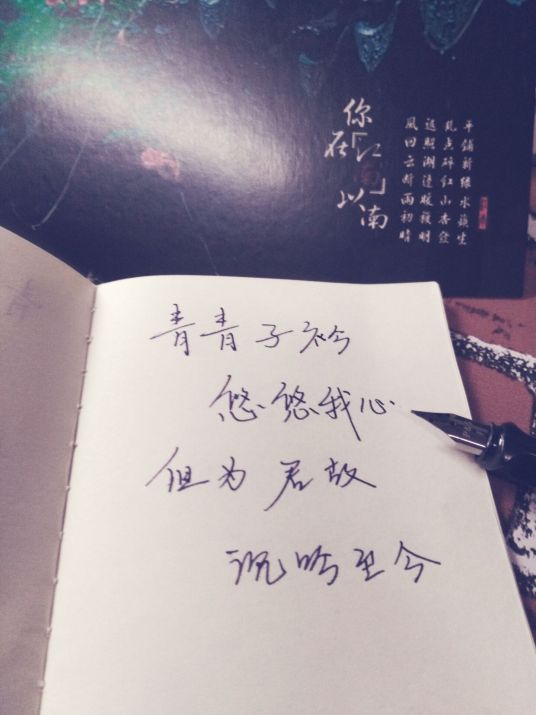 你
在「江
以南
風回云断雨初晴
返照湖邊暖複明
乱点碎红山杏發
平铺新绿水蘋生
青青子衿
悠悠我心
但为君故
沉吟至今